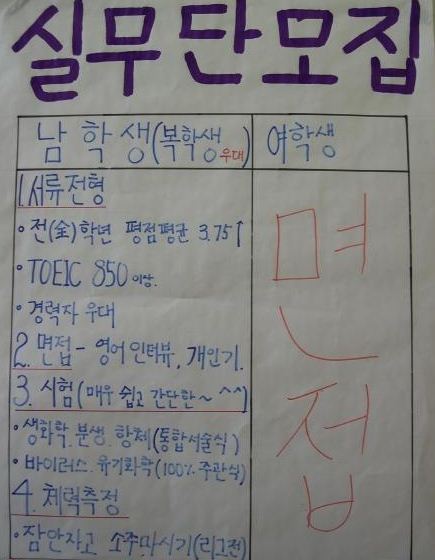 실무단모집
남학생(복학생우대) 여학생
1. 서류전형
· 전(全)학년 평점평균 3.75↑
· TOEIC 850 이상.
· 경력자 우대
2. 면접 - 영어 인터뷰, 개인기.
3. 시험(매우 쉽고 간단한~ ^^)
· 생화학. 분생. 항체(통합서술식)
· 바이러스. 유기화학(100% 주관식)
4. 체력측정
· 잠안자고 소주마시기(리그전)
면접